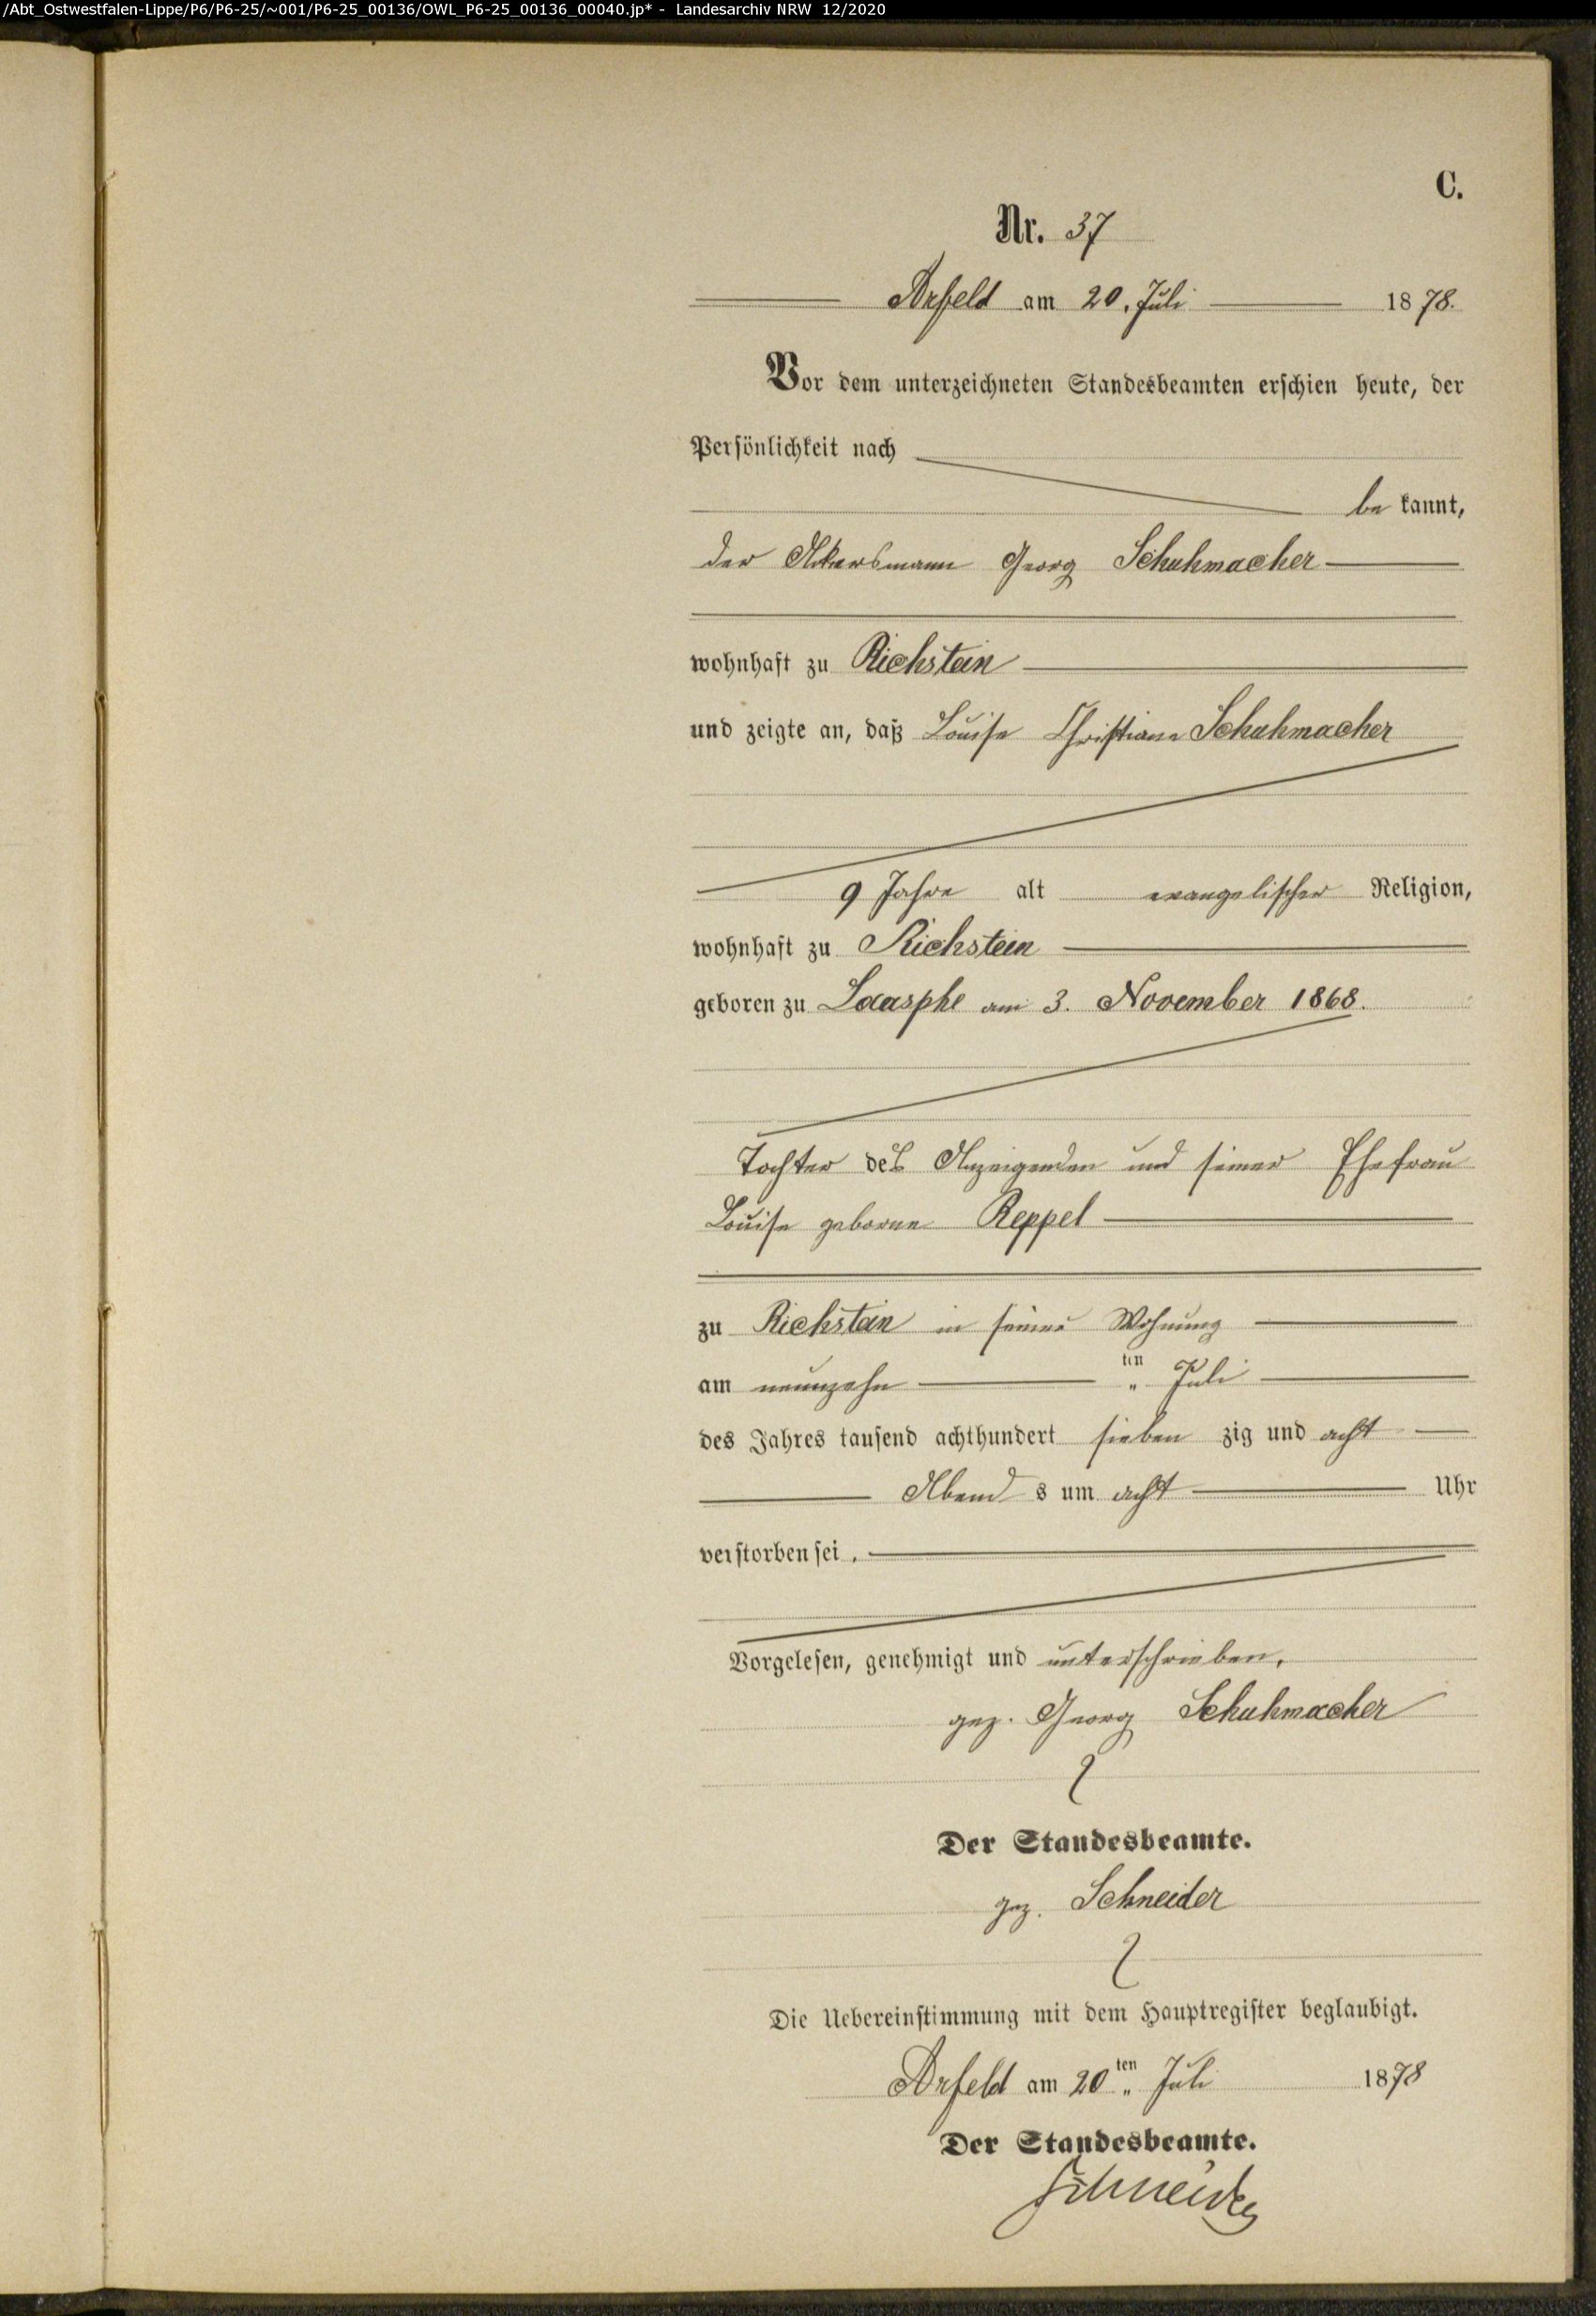 /Abt_Ostwestfalen-Lippe/P6/P6-25/~001/P6-25_00136/OWL_P6-25_00136_00040.jp* - Landesarchiv NRW 12/2020
C.
Nr. 37
Arfeld am 20. Juli 1878.
Vor dem unterzeichneten Standesbeamten erschien heute, der
Persönlichkeit nach
be kannt,
der Ackersmann Georg Schuhmacher
wohnhaft zu Richstein
und zeigte an, daß Louise Christiane Schuhmacher
9 Jahre alt evangelischer Religion,
wohnhaft zu Richstein
geboren zu Laasphe am 3. November 1868.
Tochter des Anzeigenden und seiner Ehefrau
Louise geborne Reppel
zu Richstein in seiner Wohnung
am neunzehn ten „ Juli
des Jahres tausend achthundert sieben zig und acht
Abend s um acht Uhr
verstorben sei .
Vorgelesen, genehmigt und unterschrieben,
gez. Georg Schuhmacher
Der Standesbeamte.
gez. Schneider
Die Uebereinstimmung mit dem Hauptregister beglaubigt.
Arfeld am 20 ten „ Juli 1878
Der Standesbeamte.
Schneider